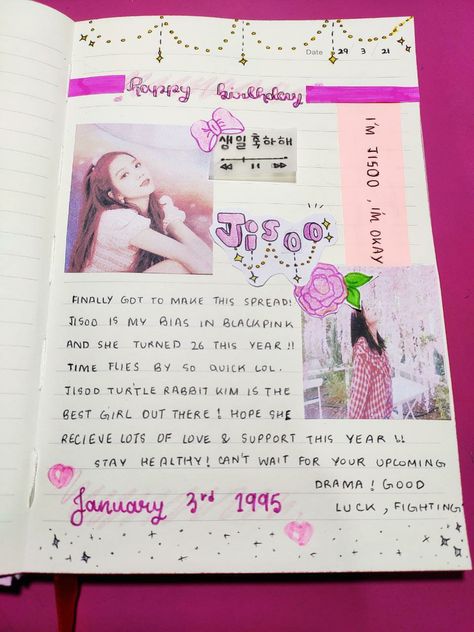 Date 29 3 21
Happy birthday
생일 축하해
I'M JISOO, I'M OKAY
Jisoo
FINALLY GOT TO MAKE THIS SPREAD!
JISOO IS MY BIAS IN BLACKPINK
AND SHE TURNED 26 THIS YEAR !!
TIME FLIES BY SO QUICK LOL.
JISOO TURTLE RABBIT KIM IS THE
BEST GIRL OUT THERE! HOPE SHE
RECIEVE LOTS OF LOVE & SUPPORT THIS YEAR !!
STAY HEALTHY! CAN'T WAIT FOR YOUR UPCOMING
DRAMA! GOOD
LUCK, FIGHTING
January 3rd 1995